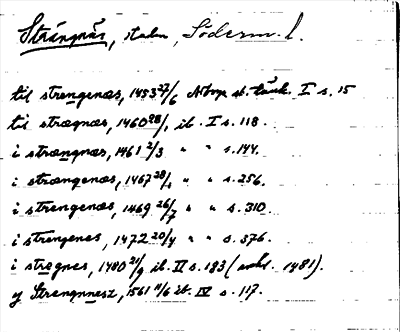 Strängnäs, staden, Söderm. l.
til strengenæs, 1453 27/6 Arboga st. tänk. I s. 15
til strægnæs, 1460 28/1 ib. I s. 118.
i strængnæs, 1461 2/3 " " s. 144.
i strængenæs, 1467 28/1 " " s. 256.
i strengenæs, 1469 26/7 " " s. 310.
i strengenes, 1472 20/4 " " s. 376.
i stregnes, 1480 21/9 ib. II s. 183 ( 1481).
y Strengnnesz, 1561 11/6 ib. IV s. 117.